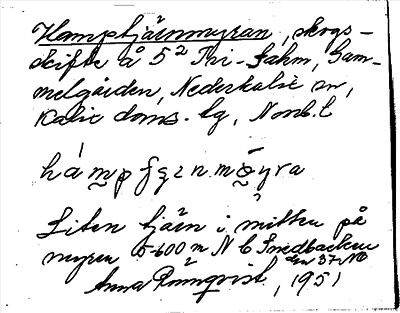 Hamptjärnmyran, skogs-
skifte å 5² Tri-Fahm, Gam-
melgården, Nederkalix sn,
Kalix doms. lg, Norrb. l
hámpfʒrnmȳra
Liten tjärn i mitten på
myren 5-600 m N C Smedbacken
Anna Rönnqvist, 1951